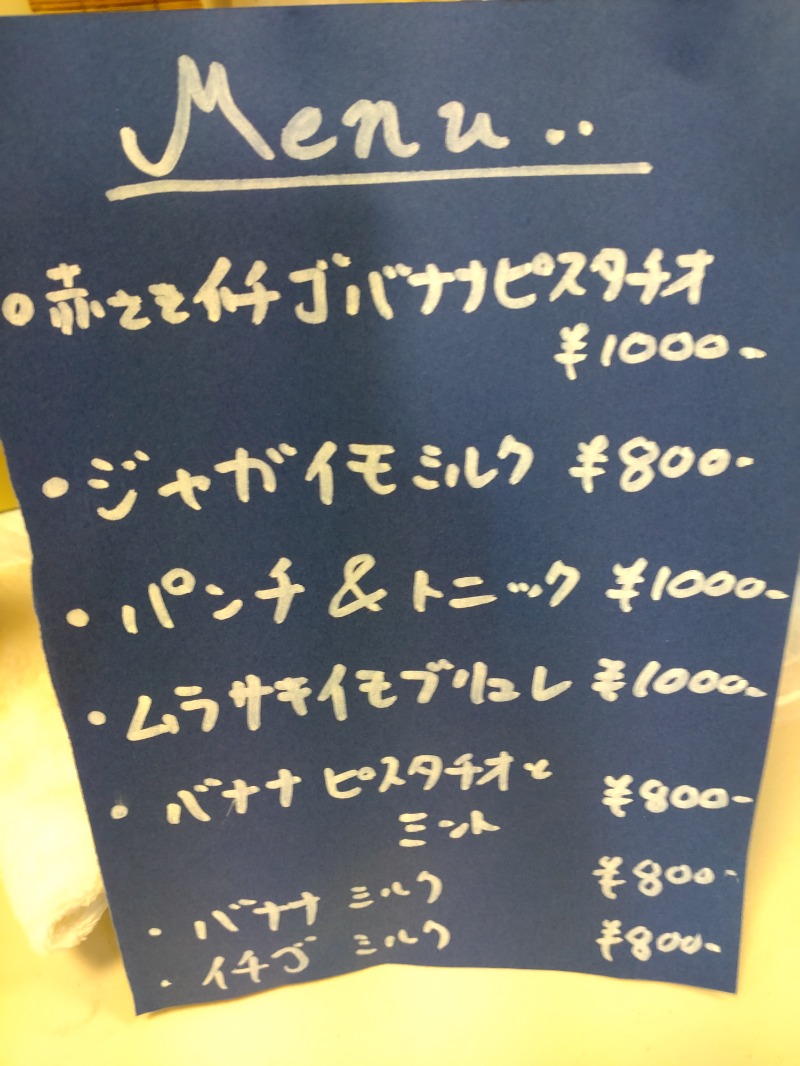 Menu..
○赤さきイチゴバナナピスタチオ
¥1000-
・ジャガイモミルク ¥800-
・パンチ&トニック ¥1000-
・ムラサキイモブリュレ ¥1000-
・バナナ ピスタチオと ¥800-
ミント
・バナナ ミルク ¥800-
・イチゴ ミルク ¥800-